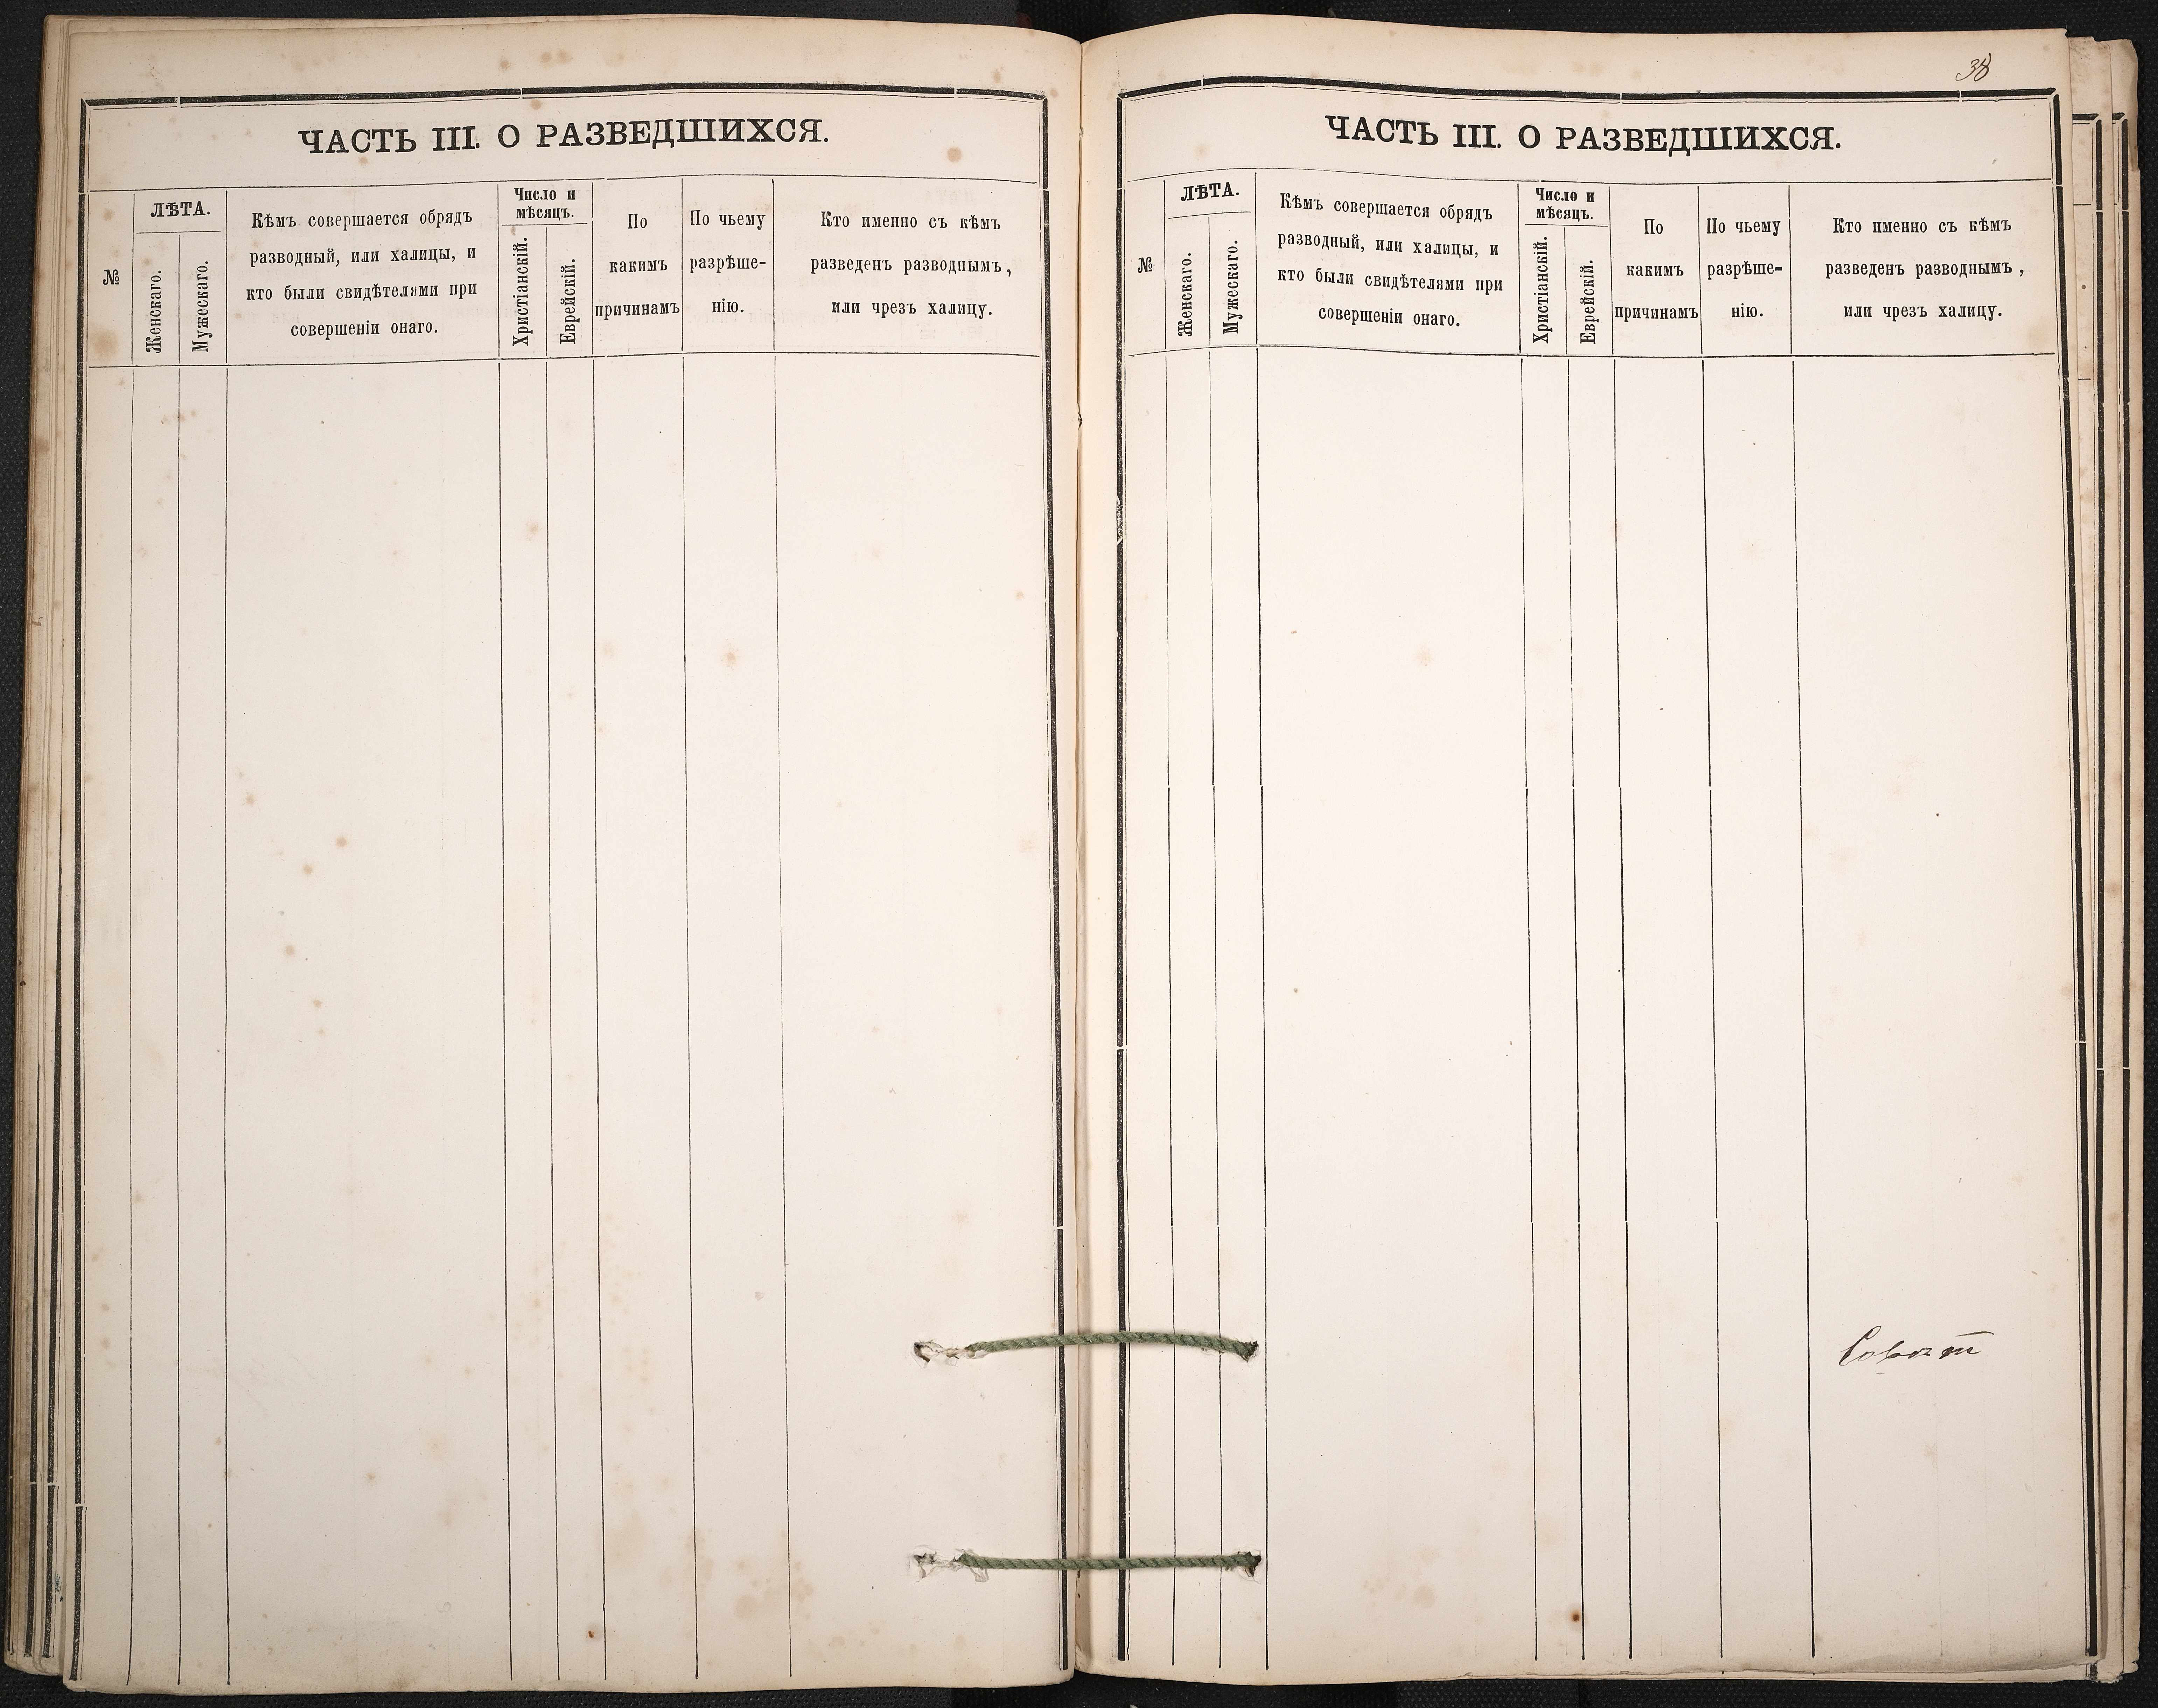 ЧАСТЬ III. О РАЗВЕДШИХСЯ.
№
ЛѢТА.
Женскаго.
Мужескаго.
Кѣмъ совершается обрядъ
разводный, или халицы, и
кто были свидѣтелями при
совершеніи онаго.
Число и
мѣсяцъ.
Христіанскій.
Еврейскій.
По
какимъ
причинамъ
По чьему
разрѣше-
нію.
Кто именно съ кѣмъ
разведенъ разводнымъ,
или чрезъ халицу.
38
ЧАСТЬ III. О РАЗВЕДШИХСЯ.
№
ЛѢТА.
Женскаго.
Мужескаго.
Кѣмъ совершается обрядъ
разводный, или халицы, и
кто были свидѣтелями при
совершеніи онаго.
Число и
мѣсяцъ.
Христіанскій.
Еврейскій.
По
какимъ
причинамъ
По чьему
разрѣше-
нію.
Кто именно съ кѣмъ
разведенъ разводнымъ,
или чрезъ халицу.